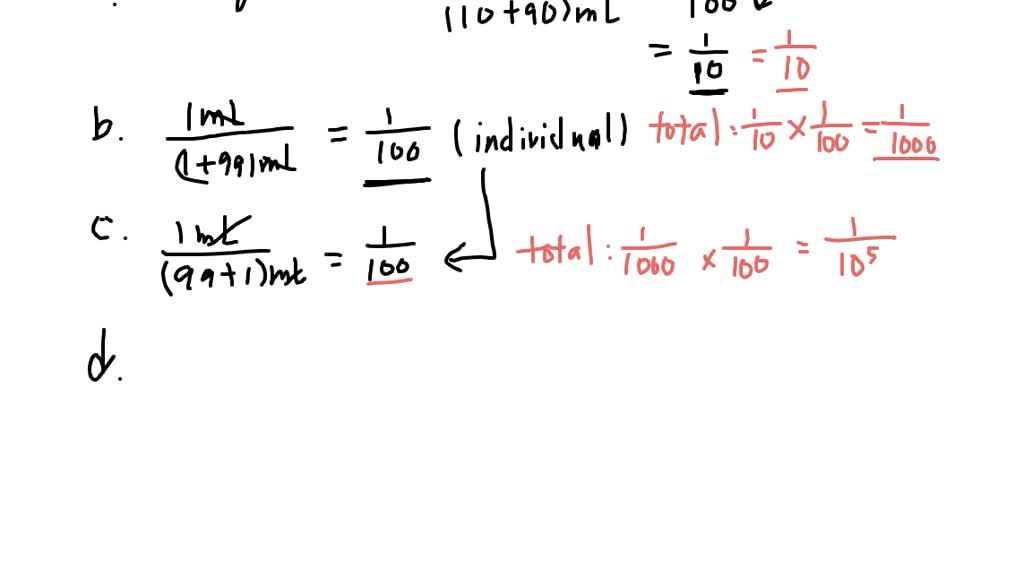 (10+90)mL 100
= 1/10 = 1/10
b. 1mL/(1+99)mL = 1/100 (individual) total: 1/10 × 1/100 = 1/1000
c. 1mL/(99+1)mL = 1/100 total: 1/1000 × 1/100 = 1/10⁵
d.